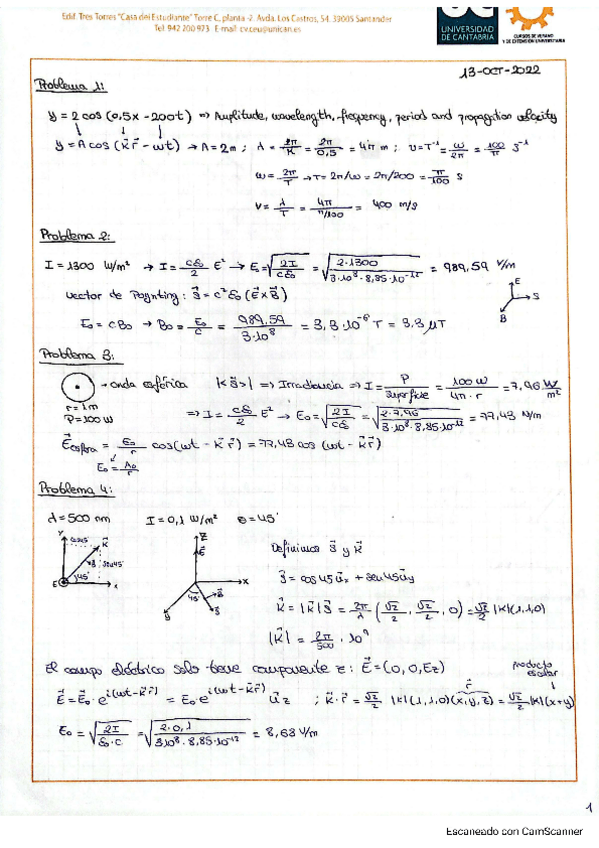 Edif. Tres Torres "Casa del Estudiante" Torre C, planta -2. Avda. Los Castros, 54. 39005 Santander
Tel: 942 200 973 E-mail: cv.ceu@unican.es
UC
UNIVERSIDAD
DE CANTABRIA
CURSOS DE VERANO
Y DE EXTENSIÓN UNIVERSITARIA
13-OCT-2022
Problema 1:
y = 2 cos (0,5x - 200t) => Amplitude, wavelength, frequency, period and propagation velocity
y = A cos (k⃗ r⃗ - ωt) → A = 2m ; λ = 2π/K = 2π/0,5 = 4π m ; υ = T⁻¹ = ω/2π = 100/π s⁻¹
ω = 2π/T → T = 2π/ω = 2π/200 = π/100 s
V = λ/T = 4π/π/100 = 400 m/s
Problema 2:
I = 1300 W/m² → I = cε₀/2 E² → E₀ = √(2I/cε₀) = √(2·1300/3·10⁸·8,85·10⁻¹²) = 989,59 V/m
Vector de Poynting: S⃗ = c²ε₀ (E⃗ x B⃗)
E
S
B
E₀ = cB₀ → B₀ = E₀/c = 989,59/3·10⁸ = 3,3·10⁻⁶ T = 3,3 μT
Problema 3:
→ onda esférica |<S⃗>| => Irradiancia => I = P/Superficie = 100 W/4π·r = 7,96 W/m²
r = 1m
P = 100 W
=> I = cε₀/2 E² → E₀ = √(2I/cε₀) = √(2·7,96/3·10⁸·8,85·10⁻¹²) = 77,43 V/m
E⃗esfera = E₀/r cos(ωt - k⃗ r⃗) = 77,43 cos (ωt - k⃗ r⃗)
E₀ = A₀/r
Problema 4:
λ = 500 nm I = 0,1 W/m² θ = 45°
y
cos45
K
S
sen45
E
45°
x
Z
E
x
45°
y
B
S
Definimos S⃗ y K⃗
S⃗ = cos 45 u⃗x + sen 45 u⃗y
K⃗ = |K⃗| S⃗ = 2π/λ (√2/2, √2/2, 0) = √2/2 |K|(1,1,0)
|K⃗| = 2π/500 · 10⁹
El campo eléctrico solo tiene componente z: E⃗ = (0,0,Ez)
producto
escalar
E⃗ = E⃗₀ · e^i(ωt - k⃗ r⃗) = E₀ · e^i(ωt - k⃗ r⃗) u⃗z ; K⃗ · r⃗ = √2/2 |K|(1,1,0)(x,y,z) = √2/2 |K|(x+y)
r⃗
E₀ = √(2I/ε₀·c) = √(2·0,1/3·10⁸·8,85·10⁻¹²) = 8,68 V/m
1
Escaneado con CamScanner